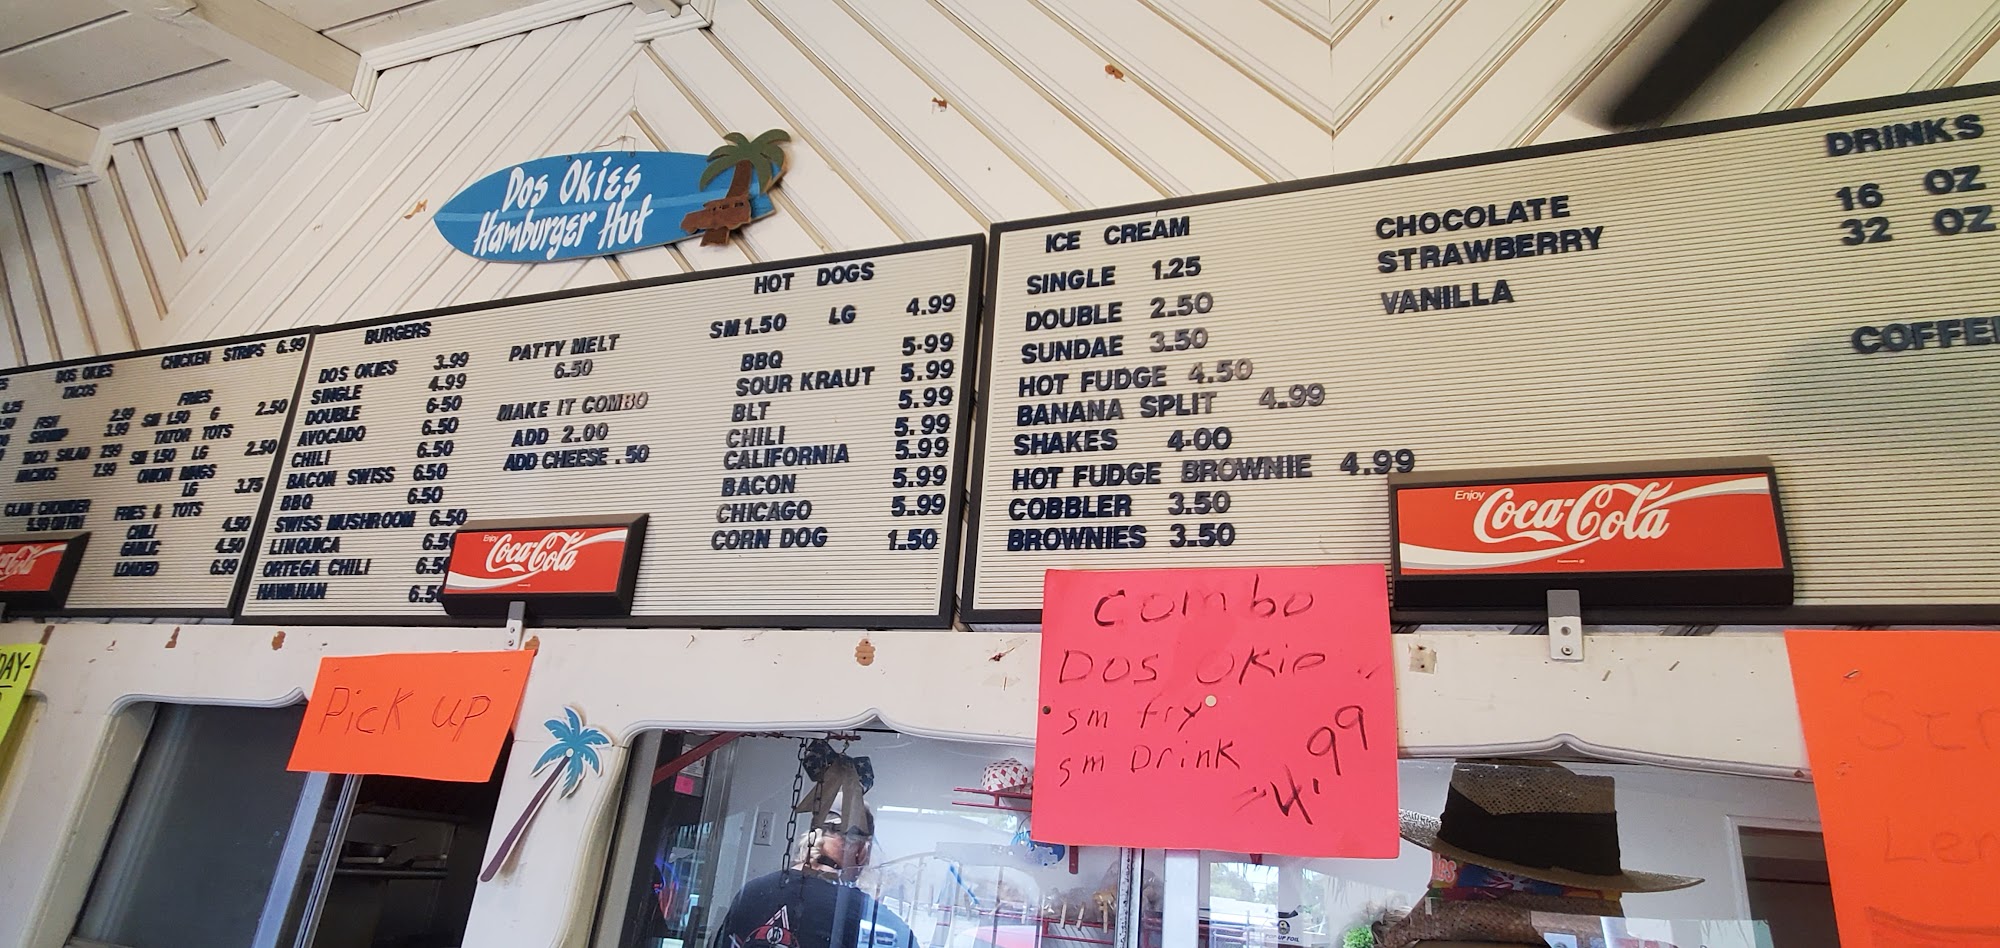 Dos Okies
Hamburger Hut
CHICKEN STRIPS 6.99
DOS OKIES
TACOS
FISH 2.99
SHRIMP 3.99
TACO SALAD 7.99
NACHOS 7.99
CLAM CHOWDER
5.99 ON FRI
FRIES
SM 1.50 G 2.50
TATOR TOTS
SM 1.50 LG 2.50
ONION RINGS
LG 3.75
FRIES & TOTS
CHILI 4.50
GARLIC 4.50
LOADED 6.99
BURGERS
DOS OKIES 3.99
SINGLE 4.99
DOUBLE 6.50
AVOCADO 6.50
CHILI 6.50
BACON SWISS 6.50
BBQ 6.50
SWISS MUSHROOM 6.50
LINQUICA 6.50
ORTEGA CHILI 6.50
HAWAIIAN 6.50
PATTY MELT
6.50
MAKE IT COMBO
ADD 2.00
ADD CHEESE .50
HOT DOGS
SM 1.50 LG 4.99
BBQ 5.99
SOUR KRAUT 5.99
BLT 5.99
CHILI 5.99
CALIFORNIA 5.99
BACON 5.99
CHICAGO 5.99
CORN DOG 1.50
ICE CREAM
SINGLE 1.25
DOUBLE 2.50
SUNDAE 3.50
HOT FUDGE 4.50
BANANA SPLIT 4.99
SHAKES 4.00
HOT FUDGE BROWNIE 4.99
COBBLER 3.50
BROWNIES 3.50
CHOCOLATE
STRAWBERRY
VANILLA
DRINKS
16 OZ
32 OZ
COFFEE
Coca-Cola
Enjoy
Coca-Cola
Enjoy
Coca-Cola
DAY-
Pick up
Combo
Dos Okie
sm fry
sm Drink
4.99